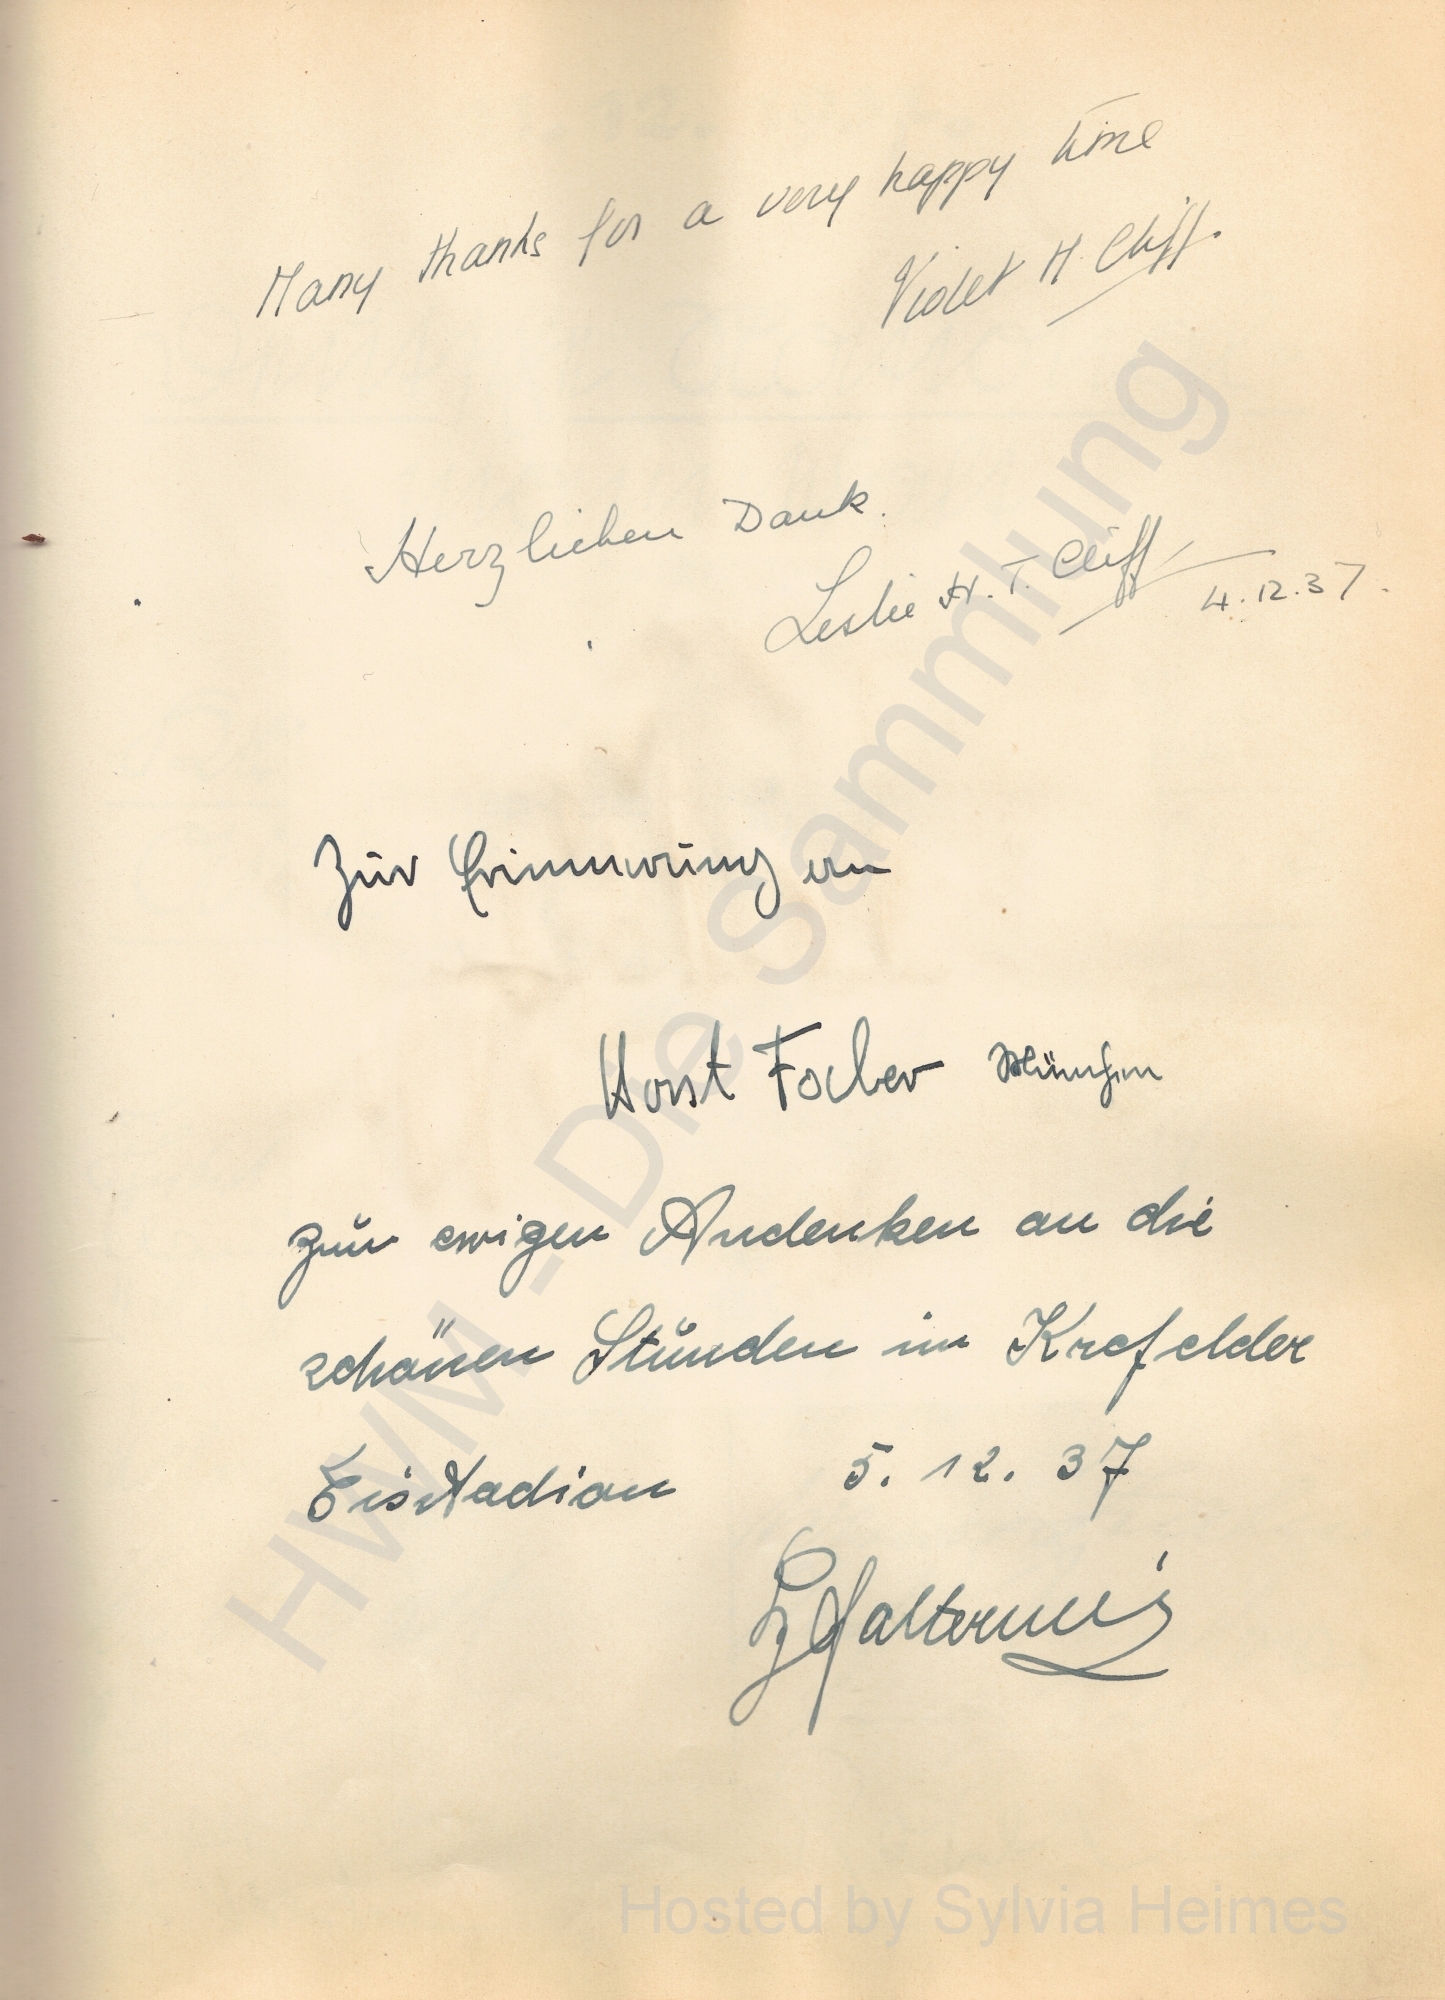 Many thanks for a very happy time
Violet H. Cliff.
Herzlichen Dank.
Leslie H. T. Cliff
4.12.37.
Zur Erinnerung an
Horst Faber München
zur ewigen Andenken an die
schönen Stunden im Krefelder
Eisstadion 5.12.37
HWM - Die Sammlung
Hosted by Sylvia Heimes